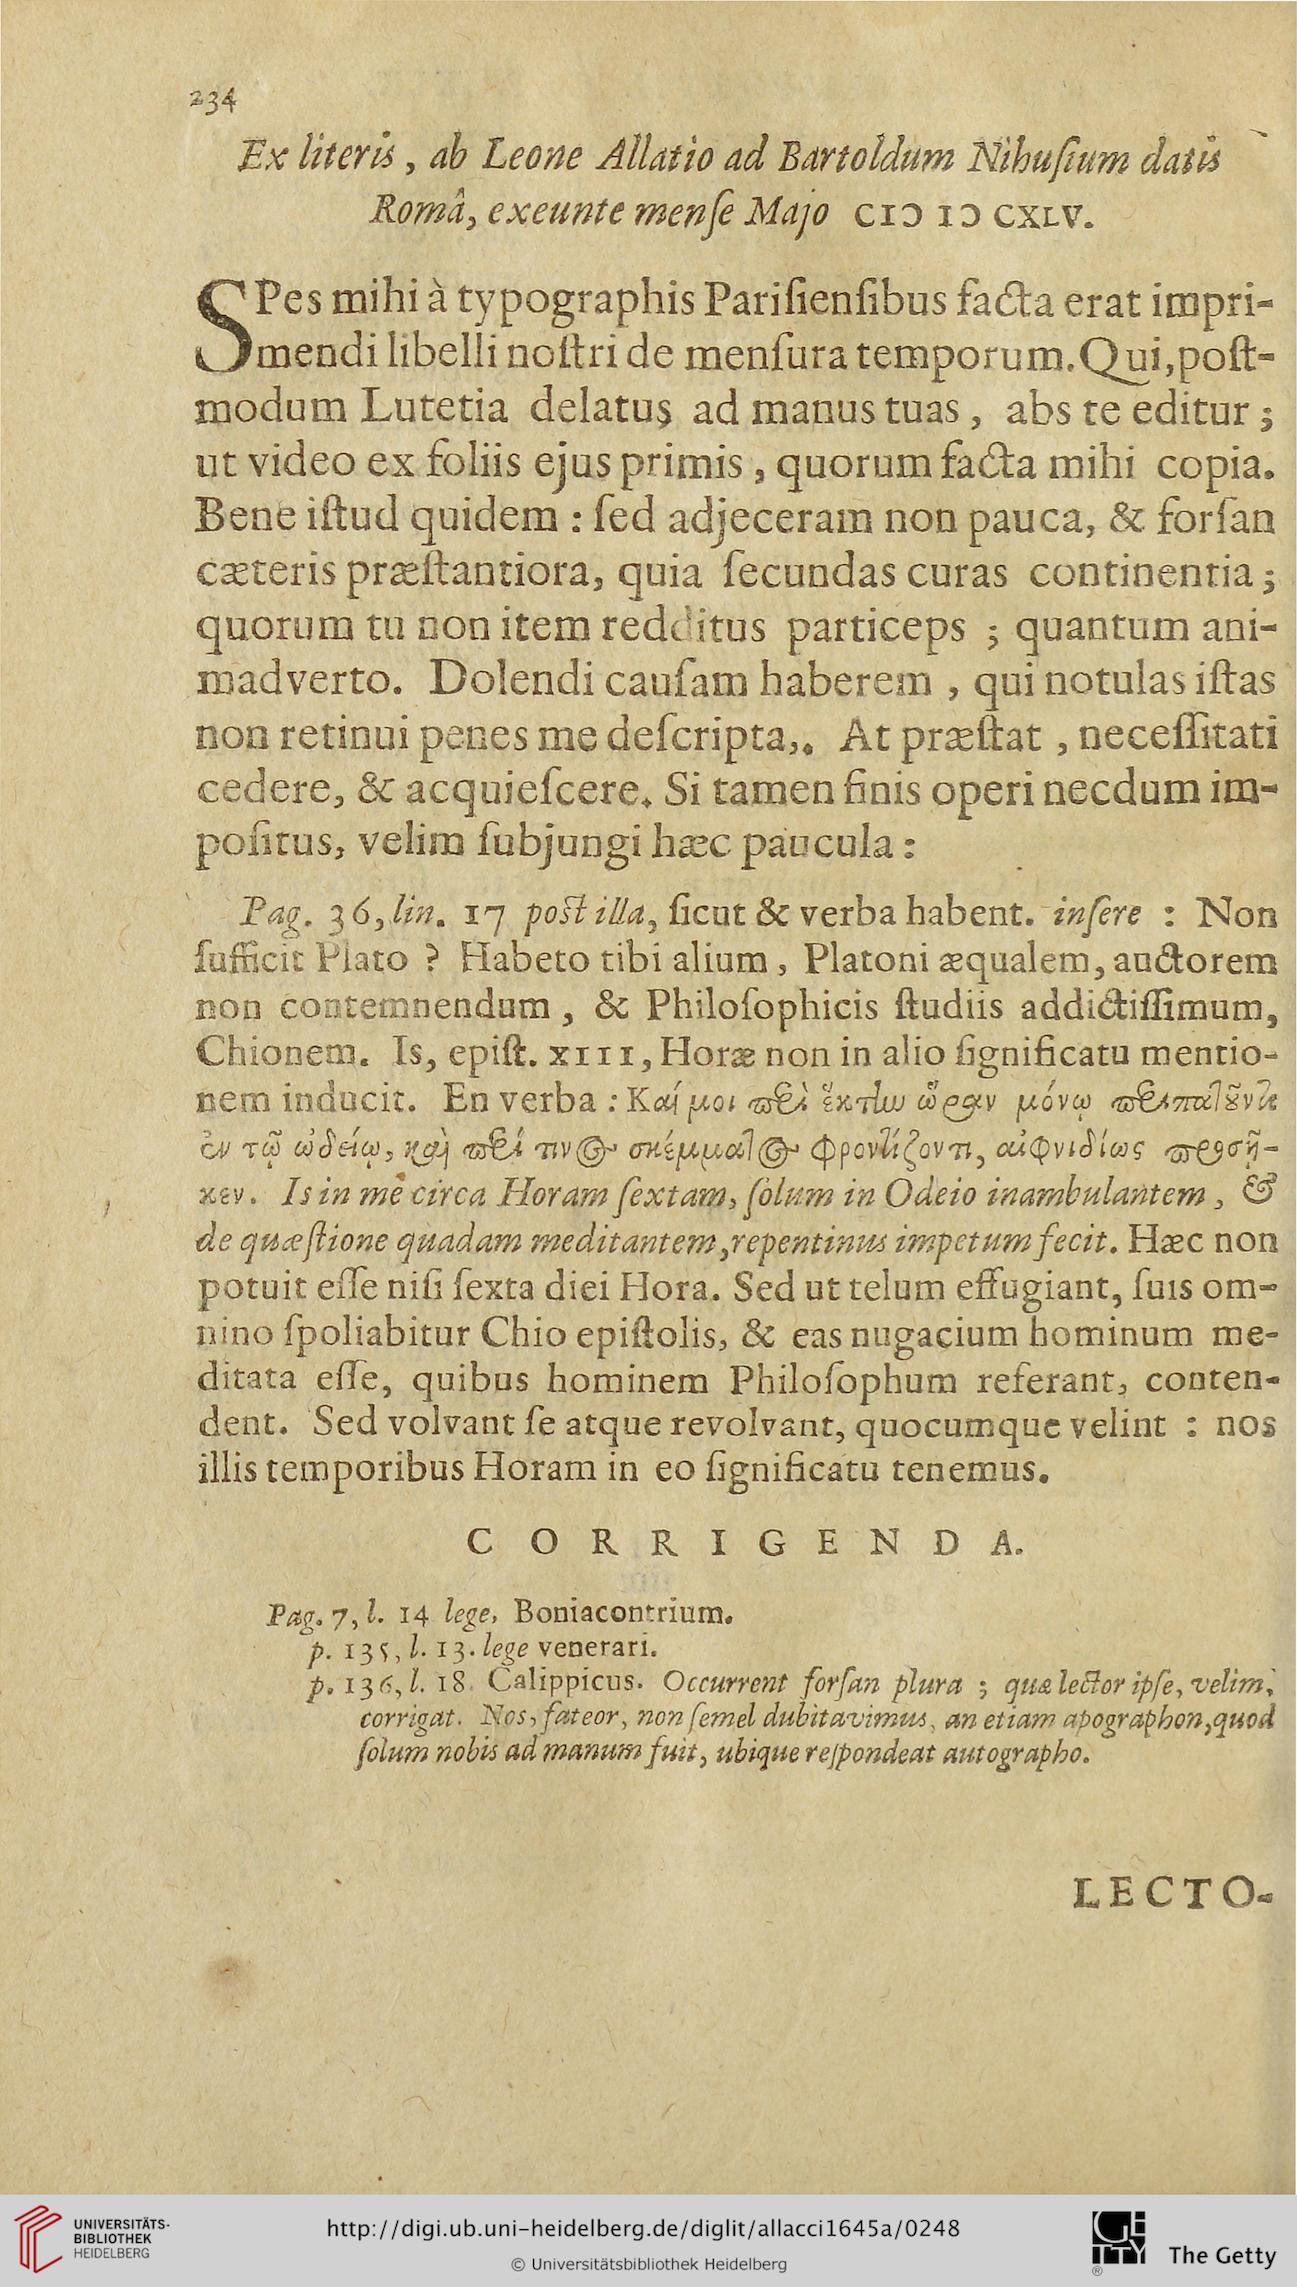 234
Ex literis, ab Leone Allatio ad Bartoldum Nihuſium datis
Româ, exeunte menſe Majo CIↃ IↃ CXLV.
SPes mihi à typographis Pariſienſibus facta erat impri-
mendi libelli noſtri de menſura temporum. Qui, poſt-
modum Lutetia delatus ad manus tuas, abs te editur;
ut video ex foliis ejus primis, quorum facta mihi copia.
Bene iſtud quidem: ſed adjeceram non pauca, & forſan
cæteris præſtantiora, quia ſecundas curas continentia;
quorum tu non item redditus particeps; quantum ani-
madverto. Dolendi cauſam haberem, qui notulas iſtas
non retinui penes me deſcripta,. At præſtat, neceſſitati
cedere, & acquieſcere. Si tamen finis operi necdum im-
poſitus, velim ſubjungi hæc paucula:
Pag. 36, lin. 17 poſt illa, ſicut & verba habent. inſere: Non
ſufficit Plato? Habeto tibi alium, Platoni æqualem, auctorem
non contemnendum, & Philoſophicis ſtudiis addictiſſimum,
Chionem. Is, epiſt. XIII, Horæ non in alio ſignificatu mentio-
nem inducit. En verba: Καί μοι περὶ ἕκτην ὥραν μόνῳ περιπατοῦντι
ἐν τῷ ᾠδείῳ, καὶ περί τινος σκέμματος φροντίζοντι, αἰφνιδίως προσῆ-
κεν. Is in me circa Horam ſextam, ſolum in Odeio inambulantem, &
de quæſtione quadam meditantem, repentinus impetum fecit. Hæc non
potuit eſſe niſi ſexta diei Hora. Sed ut telum effugiant, ſuis om-
nino ſpoliabitur Chio epiſtolis, & eas nugacium hominum me-
ditata eſſe, quibus hominem Philoſophum referant, conten-
dent. Sed volvant ſe atque revolvant, quocumque velint: nos
illis temporibus Horam in eo ſignificatu tenemus.
CORRIGENDA.
Pag. 7, l. 14 lege, Boniacontrium.
p. 135, l. 13. lege venerari.
p. 136, l. 18. Calippicus. Occurrent forſan plura; quæ lector ipſe, velim,
corrigat. Nos, fateor, non ſemel dubitavimus, an etiam apographon, quod
ſolum nobis ad manum fuit, ubique reſpondeat autographo.
LECTO-
UNIVERSITÄTS-
BIBLIOTHEK
HEIDELBERG
http://digi.ub.uni-heidelberg.de/diglit/allacci1645a/0248
© Universitätsbibliothek Heidelberg
The Getty